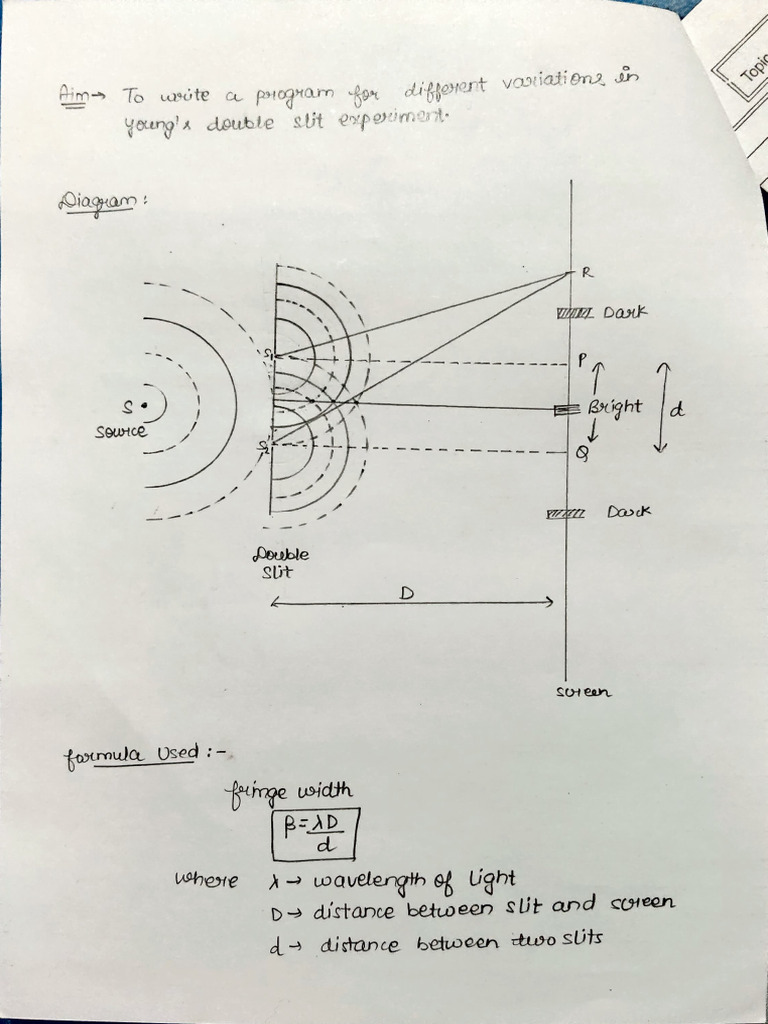 Aim → To write a program for different variations in
young's double slit experiment.
Topic
Diagram :
R
Dark
S1
P
S •
Source
Bright
d
S2
Q
Dark
Double
Slit
D
screen
formula Used :-
fringe width
β = λD/d
where λ → wavelength of light
D → distance between slit and screen
d → distance between two slits